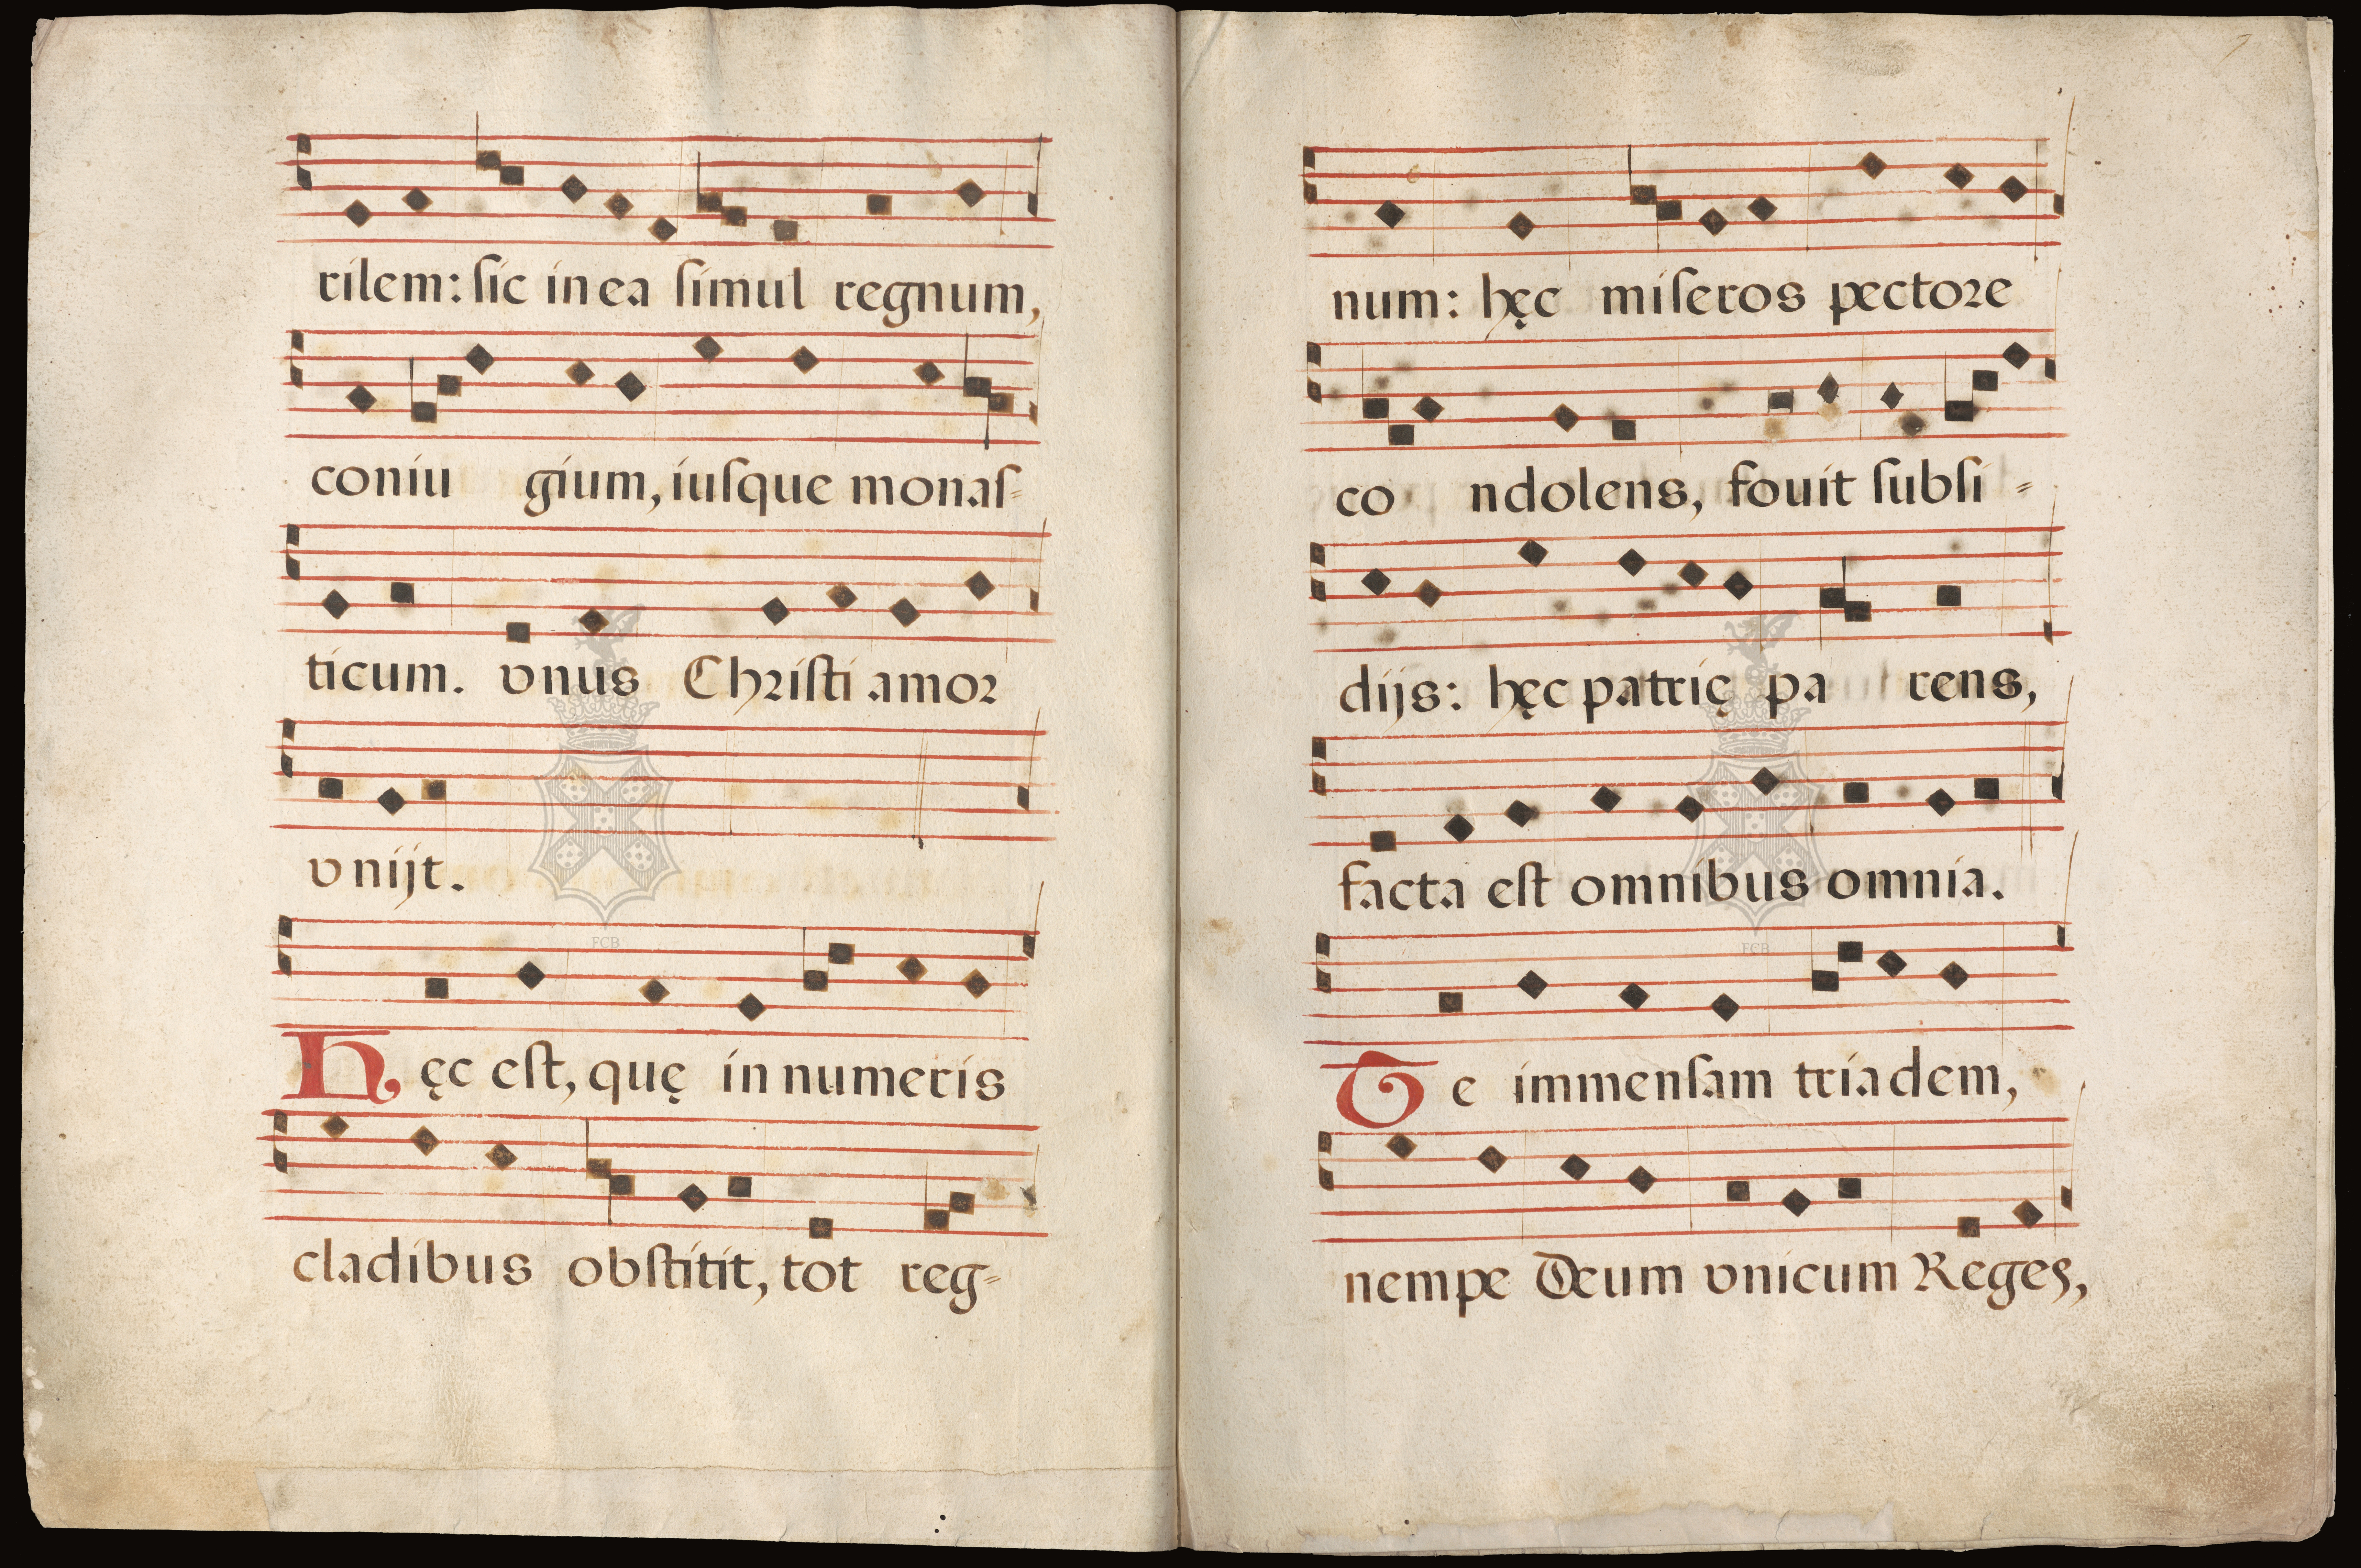 rilem: sic in ea simul regnum,
coniu gium, iusque monas=
ticum. vnus Christi amor
vnijt.
Hęc est, quę in numeris
cladibus obstitit, tot reg=
FCB
num: hęc miseros pectore
co ndolens, fouit subsi=
dijs: hęc patrię pa rens,
facta est omnibus omnia.
Te immensam triadem,
nempe Deum vnicum Reges,
FCB